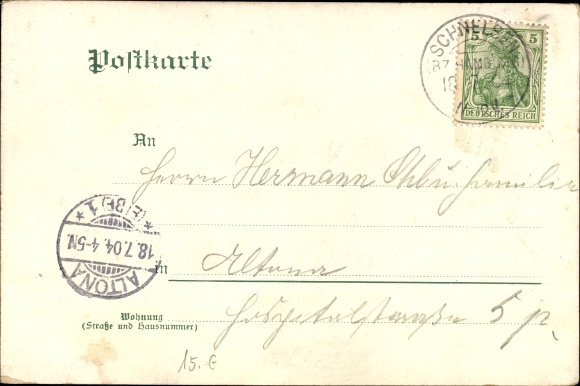 SCHNELSEN
5 5
DEUTSCHES REICH
Postkarte
An
Herrn Hermann
*(ELBE)1*
18.7.04.4-5N.
ALTONA
in Altona
Wohnung
(Straße und Hausnummer)
Hospitalstraße 5 p.
15.-€